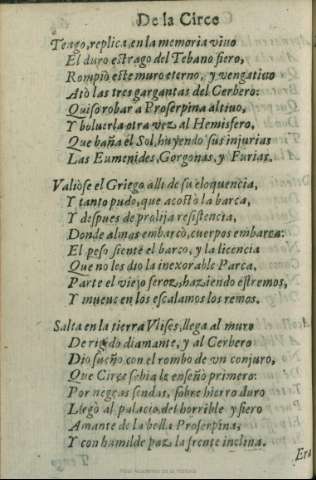 De la Circe
Tengo, replica, en la memoria viuo
El duro estrago del Tebano fiero,
Rompiò este muro eterno, y vengatiuo
Atò las tres gargantas del Cerbero:
Quiso robar a Proserpina altiuo,
Y boluerla otra vez al Hemisfero,
Que baña el Sol, huyendo sus injurias
Las Eumenides, Gorgonas, y Furias.
Valiòse el Griego alli de su eloquencia,
Y tanto pudo, que acostò la barca,
Y despues de prolija resistencia,
Donde almas embarcò, cuerpos embarca:
El peso siente el barco, y la licencia
Que no les dio la inexorable Parca,
Parte el viejo feroz, haziendo estremos,
Y mueue en los escalamos los remos.
Salta en la tierra Vlises, llega al muro
De rigido diamante, y al Cerbero
Dio sueño, con el rombo de vn conjuro,
Que Circe sabia le enseñò primero:
Por negras sendas, sobre hierro duro
Llegò al palacio del horrible y fiero
Amante de la bella Proserpina,
Y con humilde paz la frente inclina.
Era
Real Academia de la Historia